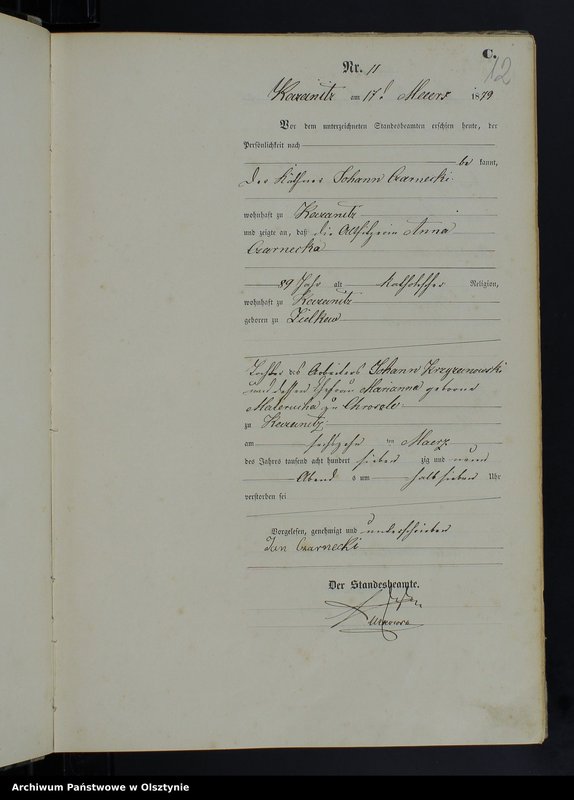 C.
12
Nr. 11
Kazanitz am 17t Maerz 1879
Vor dem unterzeichneten Standesbeamten erschien heute, der
Persönlichkeit nach
be kannt,
der Käthner Johann Czarnecki
wohnhaft zu Kazanitz
und zeigte an, daß die Altsitzerin Anna
Czarnecka
89 Jahr alt Katholischer Religion,
wohnhaft zu Kazanitz
geboren zu Zielkau
Tochter des Arbeiters Johann Krzyzanowski
und dessen Ehefrau Marianna geborne
zu Chrosle
zu Kazanitz
am sechszehn ten Maerz
des Jahres tausend acht hundert sieben zig und neun
Abend s um halb sieben Uhr
verstorben sei
Vorgelesen, genehmigt und unterschrieben
Jan Czarnecki
Der Standesbeamte.
Archiwum Państwowe w Olsztynie